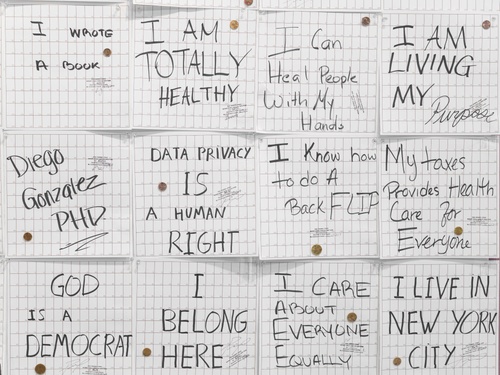 I WROTE
A BOOK
I AM
TOTALLY
HEALTHY
I Can
Heal People
With My
Hands
I AM
LIVING
MY
Purpose
Diego
Gonzalez
PHD
DATA PRIVACY
IS
A HUMAN
RIGHT
I Know how
to do A
Back FLIP
My taxes
Provides Health
Care for
Everyone
GOD
IS A
DEMOCRAT
I
BELONG
HERE
I CARE
ABOUT
EVERYONE
EQUALLY
I LIVE IN
NEW YORK
CITY